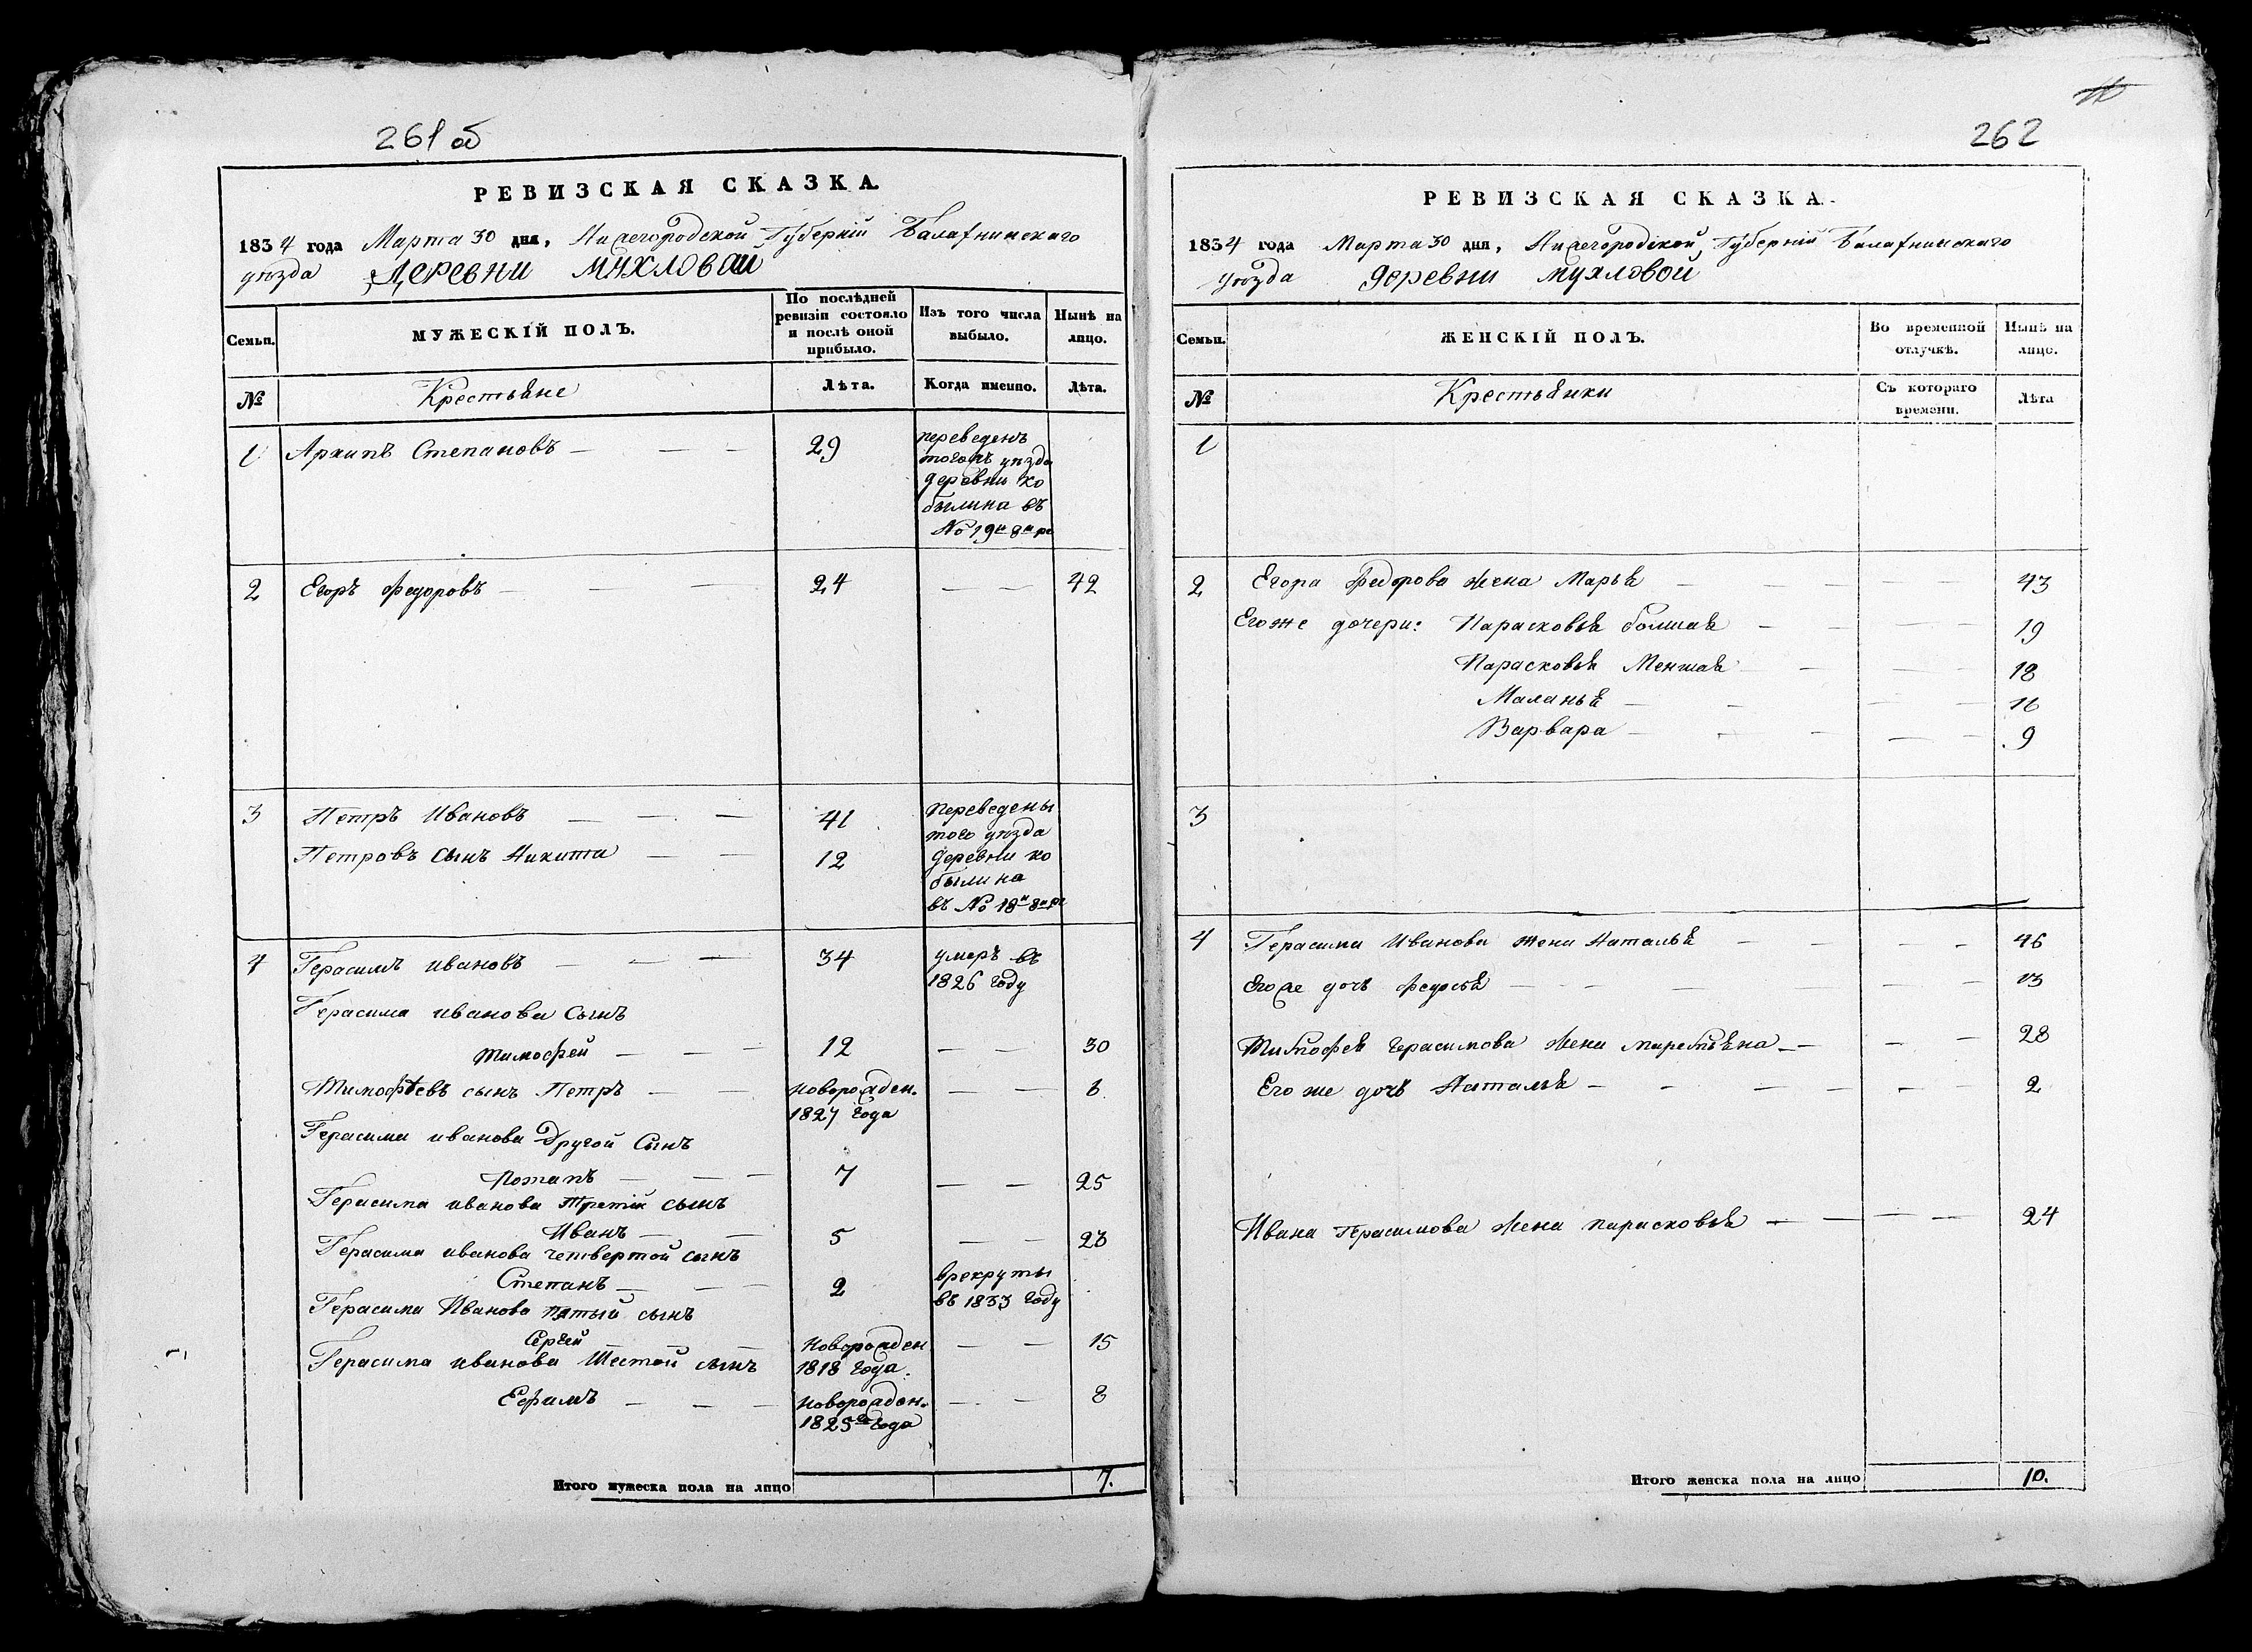 261 об
РЕВИЗСКАЯ СКАЗКА.
1834 года Марта 30 дня, Нижегородской Губерній Балахнинскаго
уѣзда Деревни Мухловой
Семьи.
МУЖЕСКІЙ ПОЛЪ.
По послѣдней ревизіи состояло и послѣ оной прибыло.
Изъ того числа выбыло.
Нынѣ на лицо.
№
Крестьяне
Лѣта.
Когда именно.
Лѣта.
1 Архипъ Степановъ — — — 29
переведенъ
тогожъ уѣзда
деревни ко
былина въ
№ 19й 8й ре
2 Егоръ Федоровъ — — — 24 — — 42
3 Петръ Ивановъ — — — 41
Петровъ сынъ Никита — — 12
переведены
того уѣзда
деревни ко
былина
въ № 18й 8й ре
4 Герасимъ ивановъ — — — 34 умеръ въ
1826 году
Герасима иванова сынъ
тимофей — — — 12 — — 30
Тимофѣевъ сынъ Петръ — — новорожден. — — 6
1827 года
Герасима иванова Другой Сынъ
Потапъ — — — 7 — — 25
Герасима иванова Третій сынъ
Иванъ — — 5 — — 23
Герасима иванова четвертой сынъ
Степанъ — — — 2 врекруты
въ 1833 году
Герасима Иванова пятый сынъ
Сергей — — новорожден — — 15
1818 года.
Герасима иванова Шестой сынъ
Ефимъ — — — новорожден. — — 8
1825го года
Итого мужеска пола на лицо 7.
262
РЕВИЗСКАЯ СКАЗКА.
1834 года Марта 30 дня, Нижегородской Губерніи Балахнинскаго
уѣзда деревни мухловой
Семьи.
ЖЕНСКІЙ ПОЛЪ.
Во временной отлучкѣ.
Нынѣ на лицо.
№
Крестьянки
Съ котораго времени.
Лѣта
1
2 Егора Федорова жена Марья — — — — — 43
Егоже дочери: Парасковья болшая — — — — 19
Парасковья Меншая — — — 18
Маланья — — — — 16
Варвара — — — — — 9
3
4 Герасима Иванова жена Наталья — — — — 46
Егоже дочь Федосья — — — — — 13
Тимофея Герасимова жена маремьяна — — — 28
Его же дочь Наталья — — — — — 2
Ивана Герасимова жена парасковья — — — — 24
Итого женска пола на лицо 10.